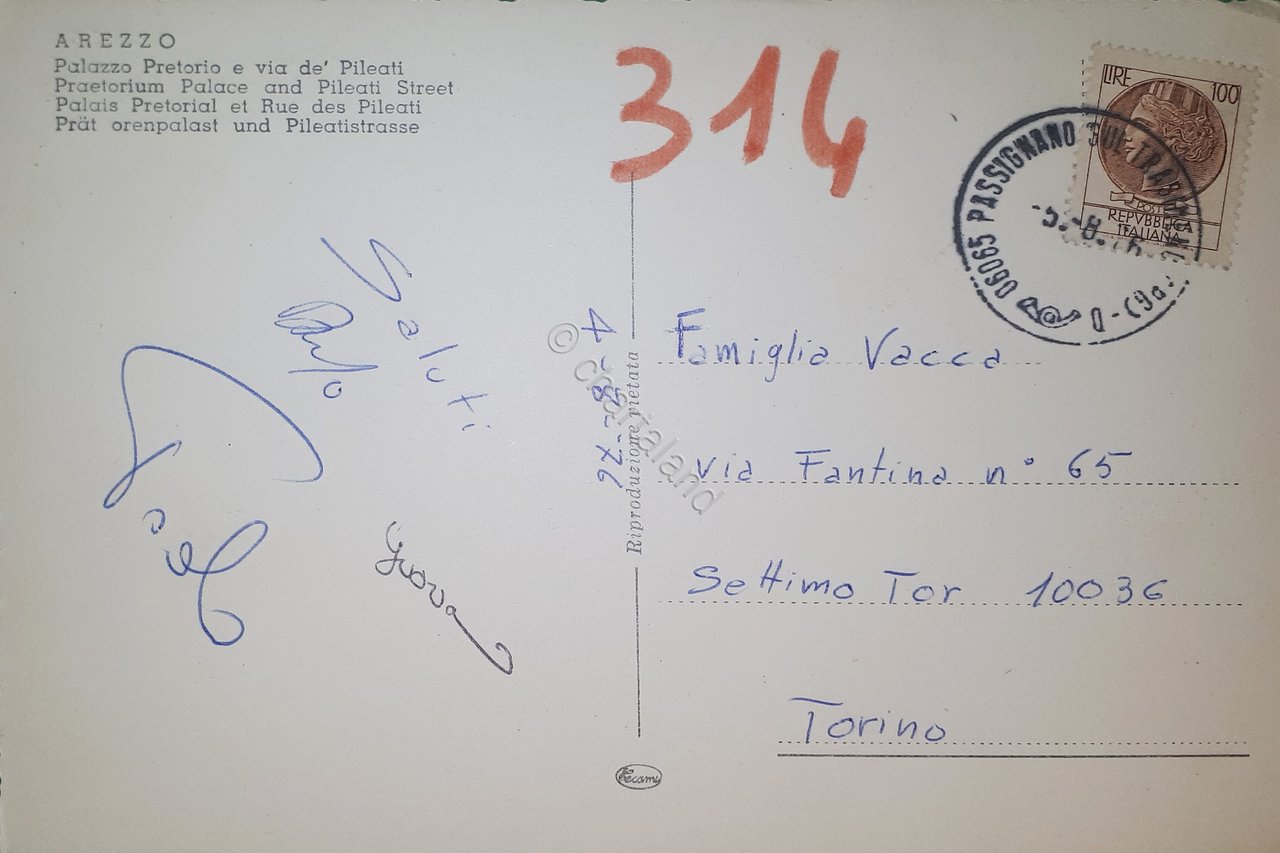 AREZZO
Palazzo Pretorio e via de' Pileati
Praetorium Palace and Pileati Street
Palais Pretorial et Rue des Pileati
Prät orenpalast und Pileatistrasse
314
LIRE 100
POSTE
REPVBBLICA
ITALIANA
06065 PASSIGNANO SUL TRASIM
Saluti
Carlo
4-8-76
Riproduzione vietata
© chartaland
Famiglia Vacca
via Fantina n° 65
Settimo Tor 10036
Torino